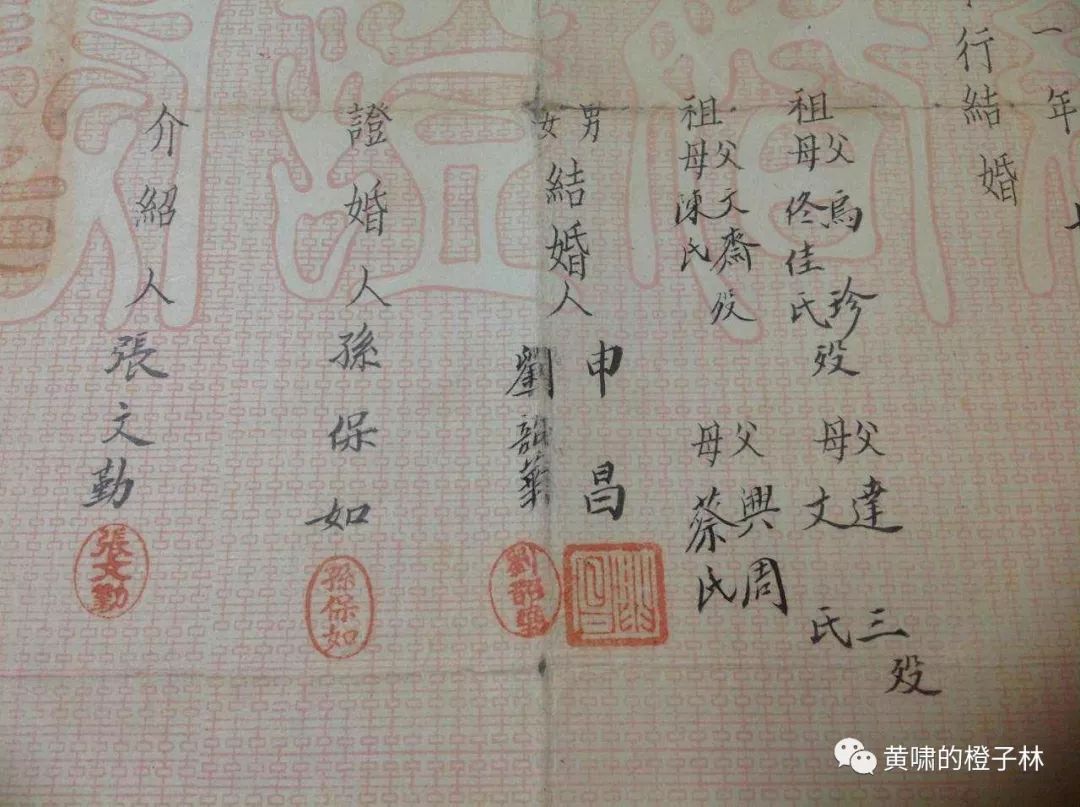 一年
行結婚
祖父烏珍殁
母佟佳氏
父達三殁
母文氏
祖父文齋殁
母陳氏
父興周
母蔡氏
男女結婚人
申昌
劉韶華
證婚人孫保如
介紹人張文勤
孫保如
張文勤
黄啸的橙子林